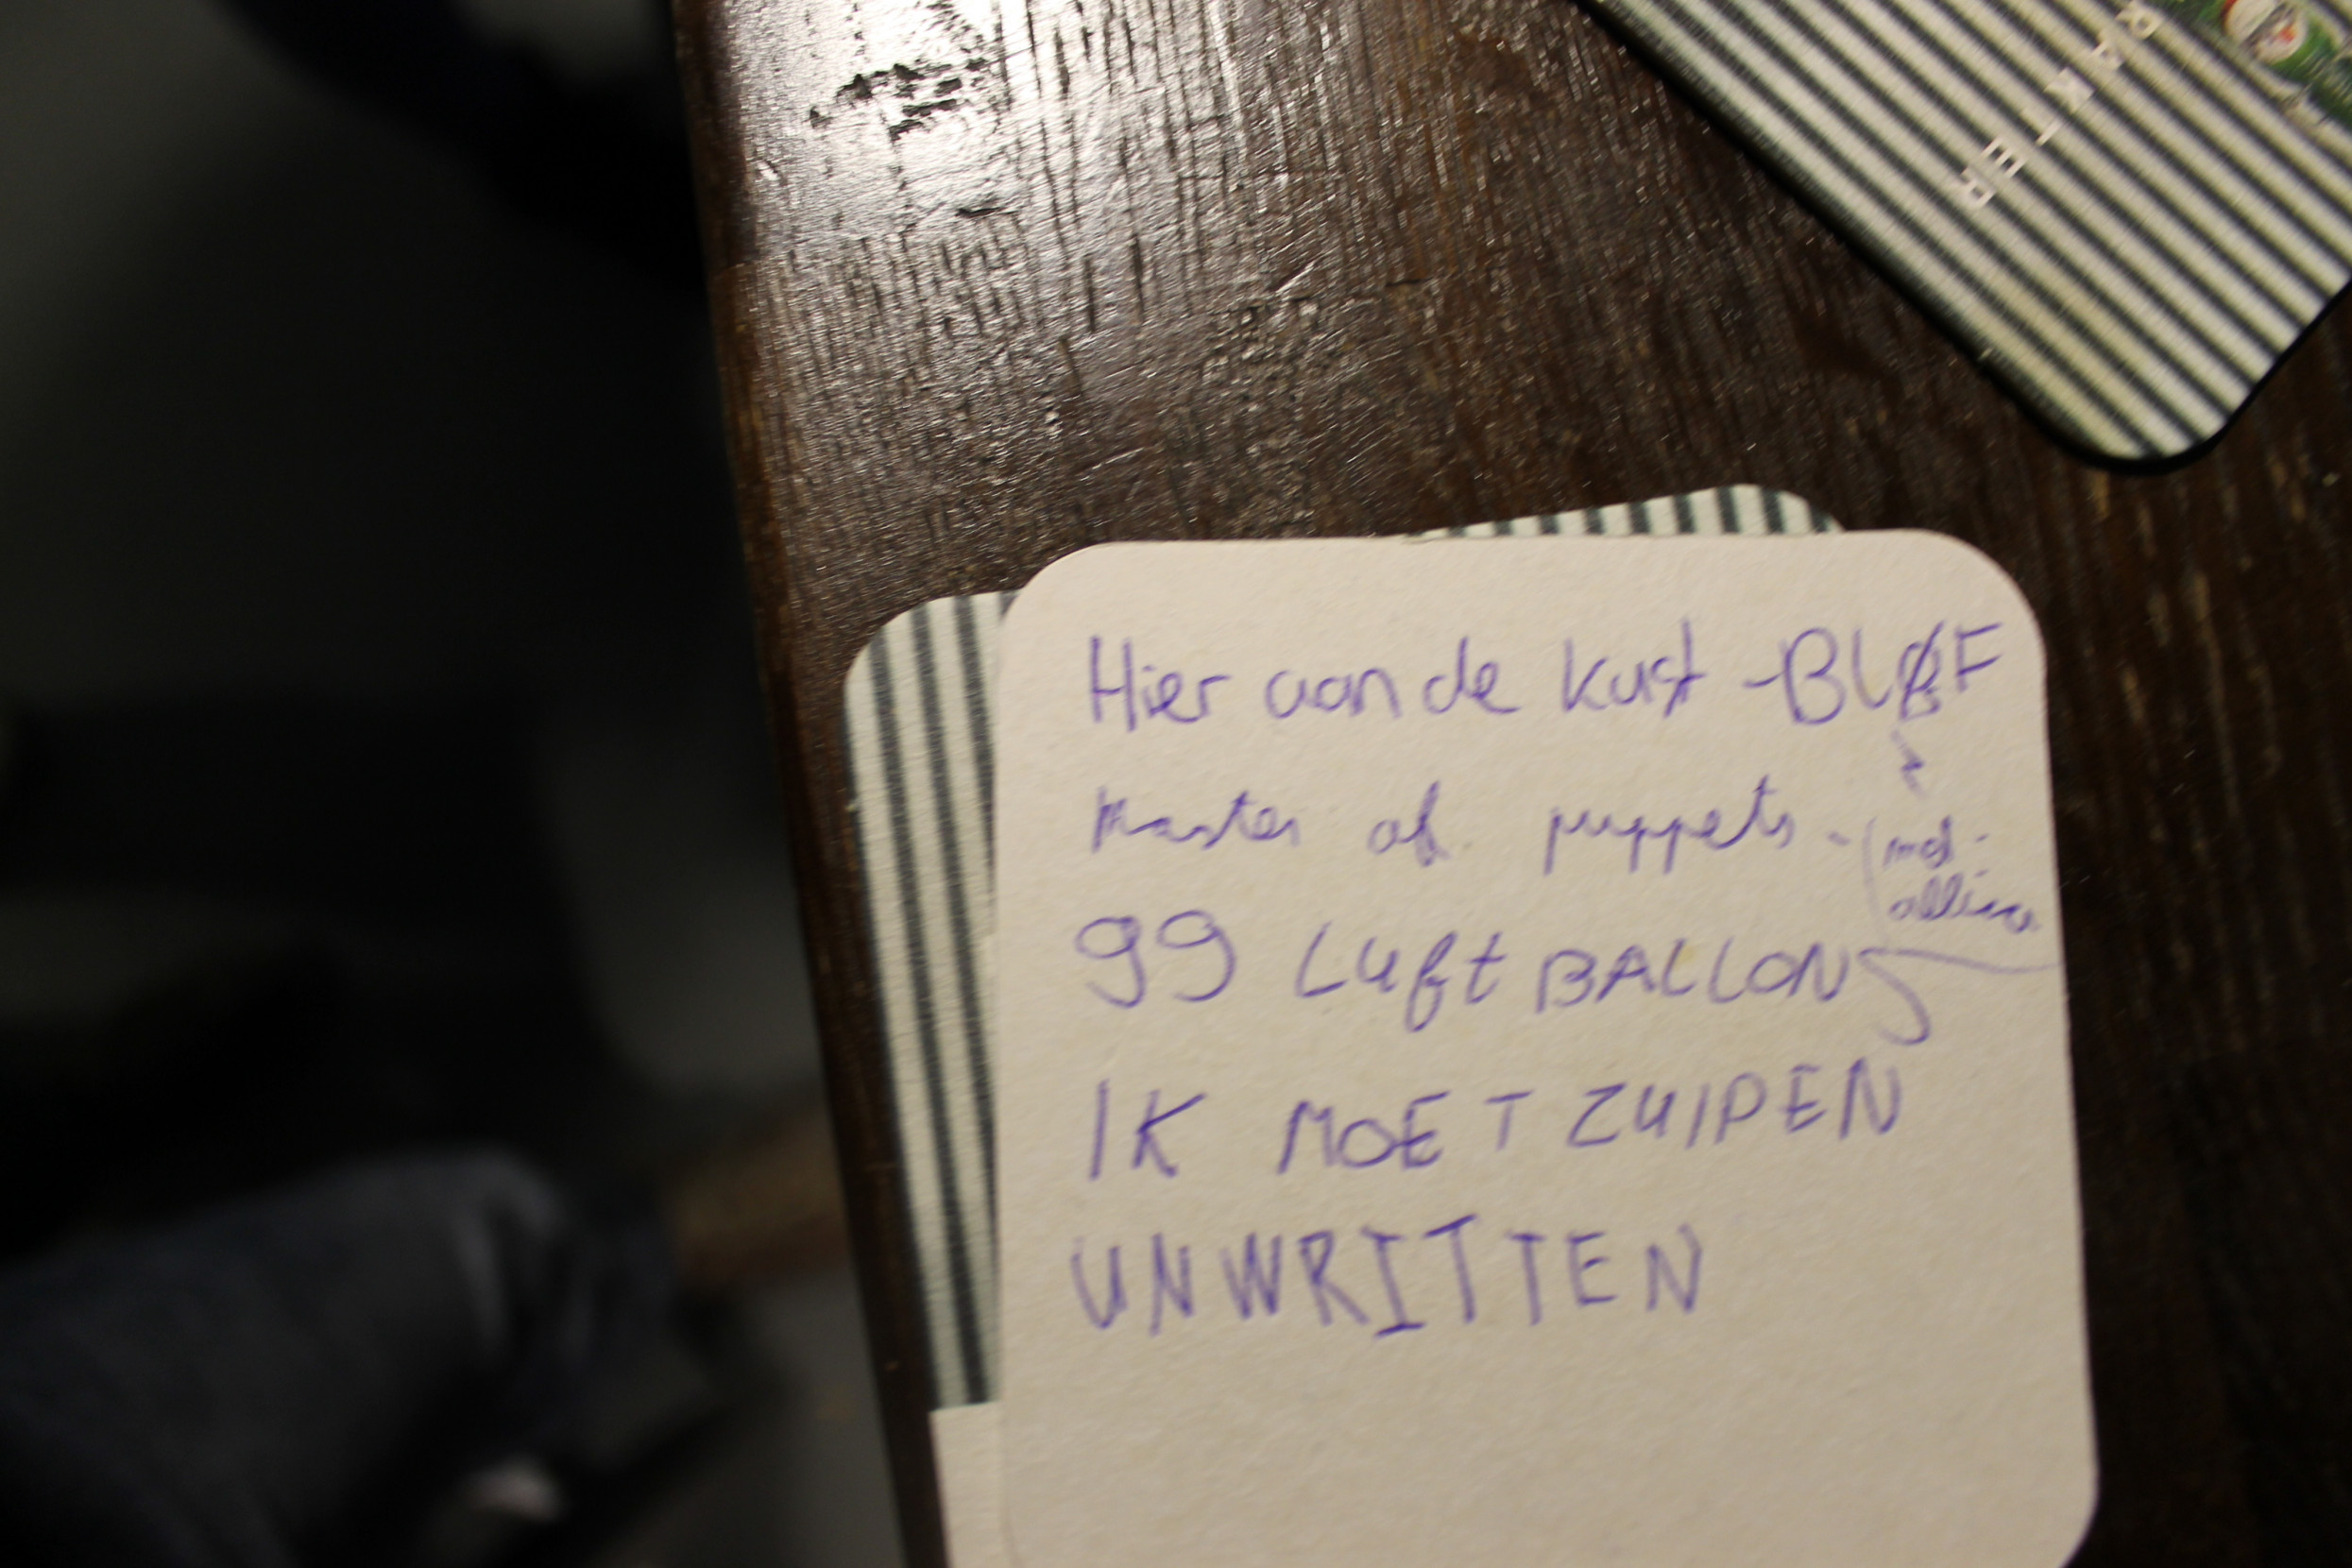 RAKTER
Hier aan de kust - BLØF
Master of puppets - (met.
99 LuftBALLONS
IK MOET ZUIPEN
UNWRITTEN